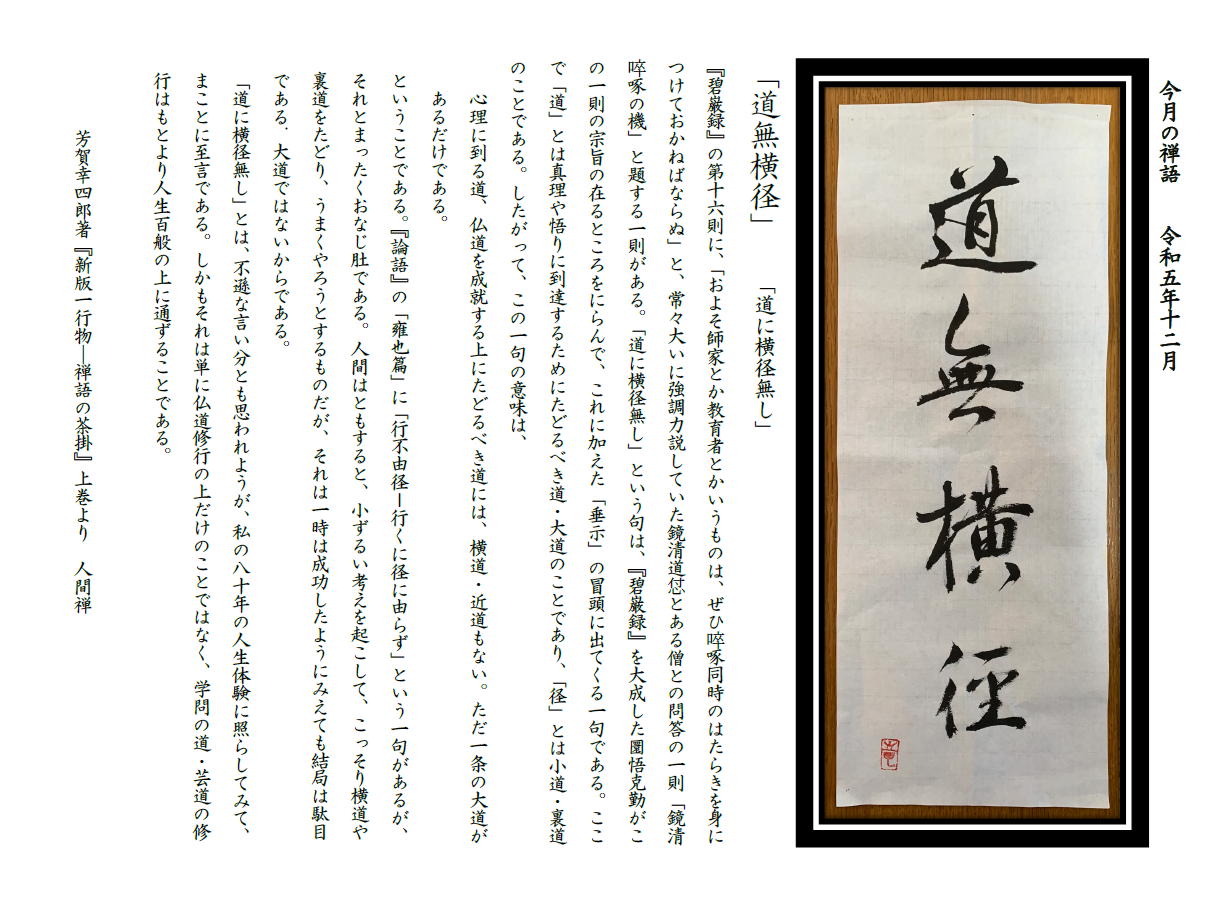 今月の禅語　　令和五年十二月
道無横径
「道無横径」　　「道に横径無し」
『碧巌録』の第十六則に、「およそ師家とか教育者とかいうものは、ぜひ啐啄同時のはたらきを身に
つけておかねばならぬ」と、常々大いに強調力説していた鏡清道怤とある僧との問答の一則「鏡清
啐啄の機」と題する一則がある。「道に横径無し」という句は、『碧巌録』を大成した圜悟克勤がこ
の一則の宗旨の在るところをにらんで、これに加えた「垂示」の冒頭に出てくる一句である。ここ
で「道」とは真理や悟りに到達するためにたどるべき道・大道のことであり、「径」とは小道・裏道
のことである。したがって、この一句の意味は、
心理に到る道、仏道を成就する上にたどるべき道には、横道・近道もない。ただ一条の大道が
あるだけである。
ということである。『論語』の「雍也篇」に「行不由径―行くに径に由らず」という一句があるが、
それとまったくおなじ肚である。人間はともすると、小ずるい考えを起こして、こっそり横道や
裏道をたどり、うまくやろうとするものだが、それは一時は成功したようにみえても結局は駄目
である．大道ではないからである。
「道に横径無し」とは、不遜な言い分とも思われようが、私の八十年の人生体験に照らしてみて、
まことに至言である。しかもそれは単に仏道修行の上だけのことではなく、学問の道・芸道の修
行はもとより人生百般の上に通ずることである。
芳賀幸四郎著『新版一行物―禅語の茶掛』上巻より　人間禅